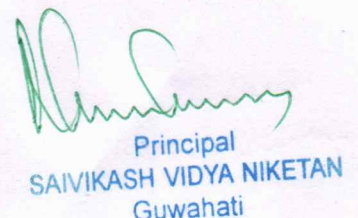 Principal
SAIVIKASH VIDYA NIKETAN
Guwahati